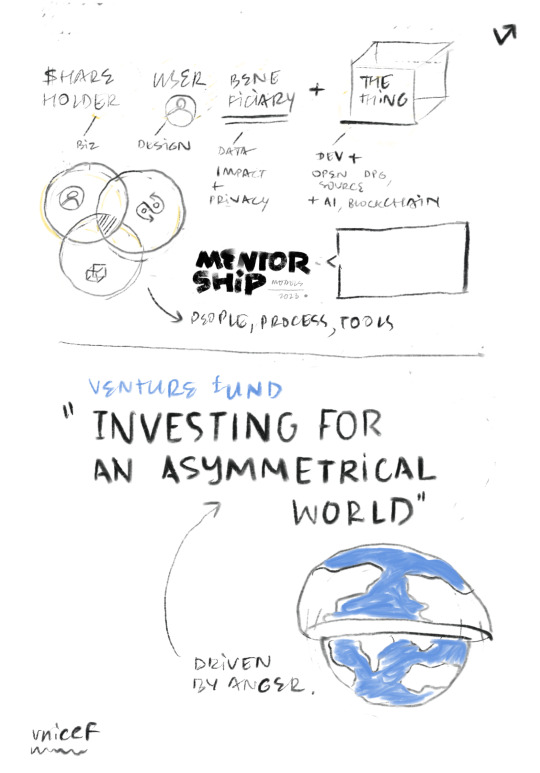 $HARE
HOLDER
USER
BENE
FICIARY
+
THE
THING
BIZ
DESIGN
DATA
IMPACT
+
PRIVACY
DEV +
OPEN DPG,
SOURCE
+ AI, BLOCKCHAIN
MENTOR
SHIP
MODELS
2023
PEOPLE, PROCESS, TOOLS
VENTURE FUND
"INVESTING FOR
AN ASYMMETRICAL
WORLD"
DRIVEN
BY ANGER.
unicef